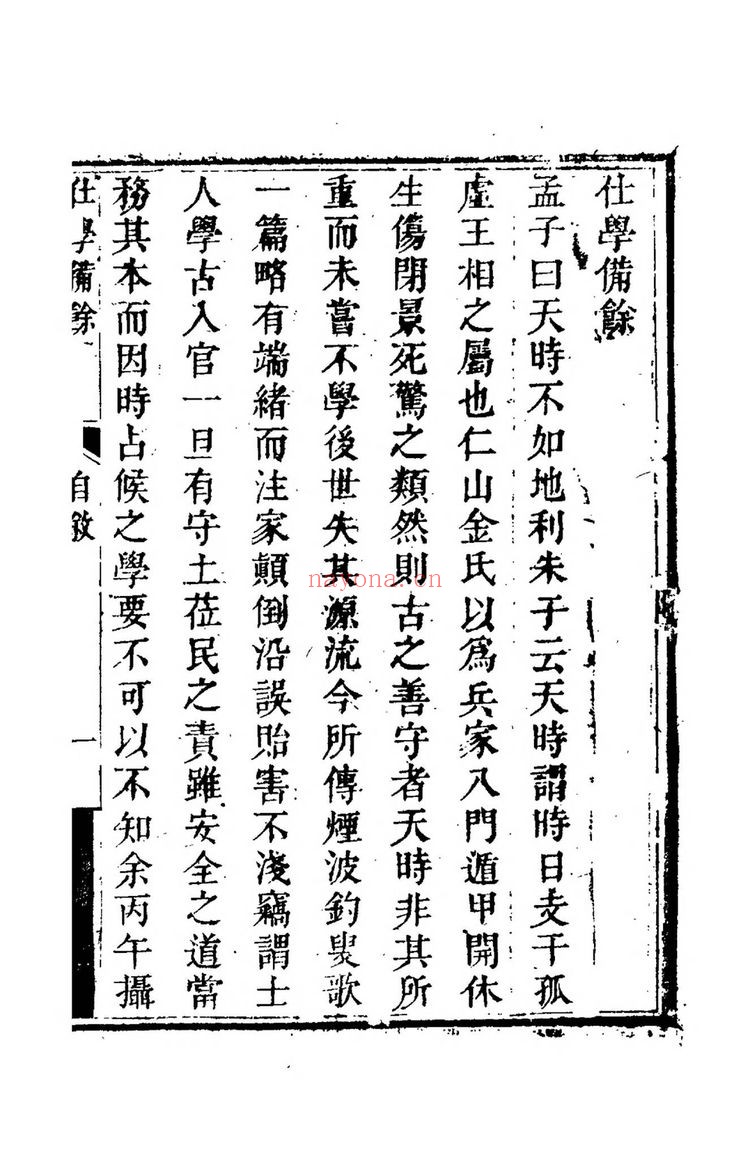 仕學備餘
孟子曰天時不如地利朱子云天時謂時日支干孤
虛王相之屬也仁山金氏以爲兵家八門遁甲開休
生傷閉景死驚之類然則古之善守者天時非其所
重而未嘗不學後世失其源流今所傳煙波釣叟歌
一篇略有端緒而注家顛倒沿誤貽害不淺竊謂士
人學古入官一旦有守土莅民之責雖安全之道當
務其本而因時占候之學要不可以不知余丙午攝
仕學備餘 自敘 一
nayona.cn